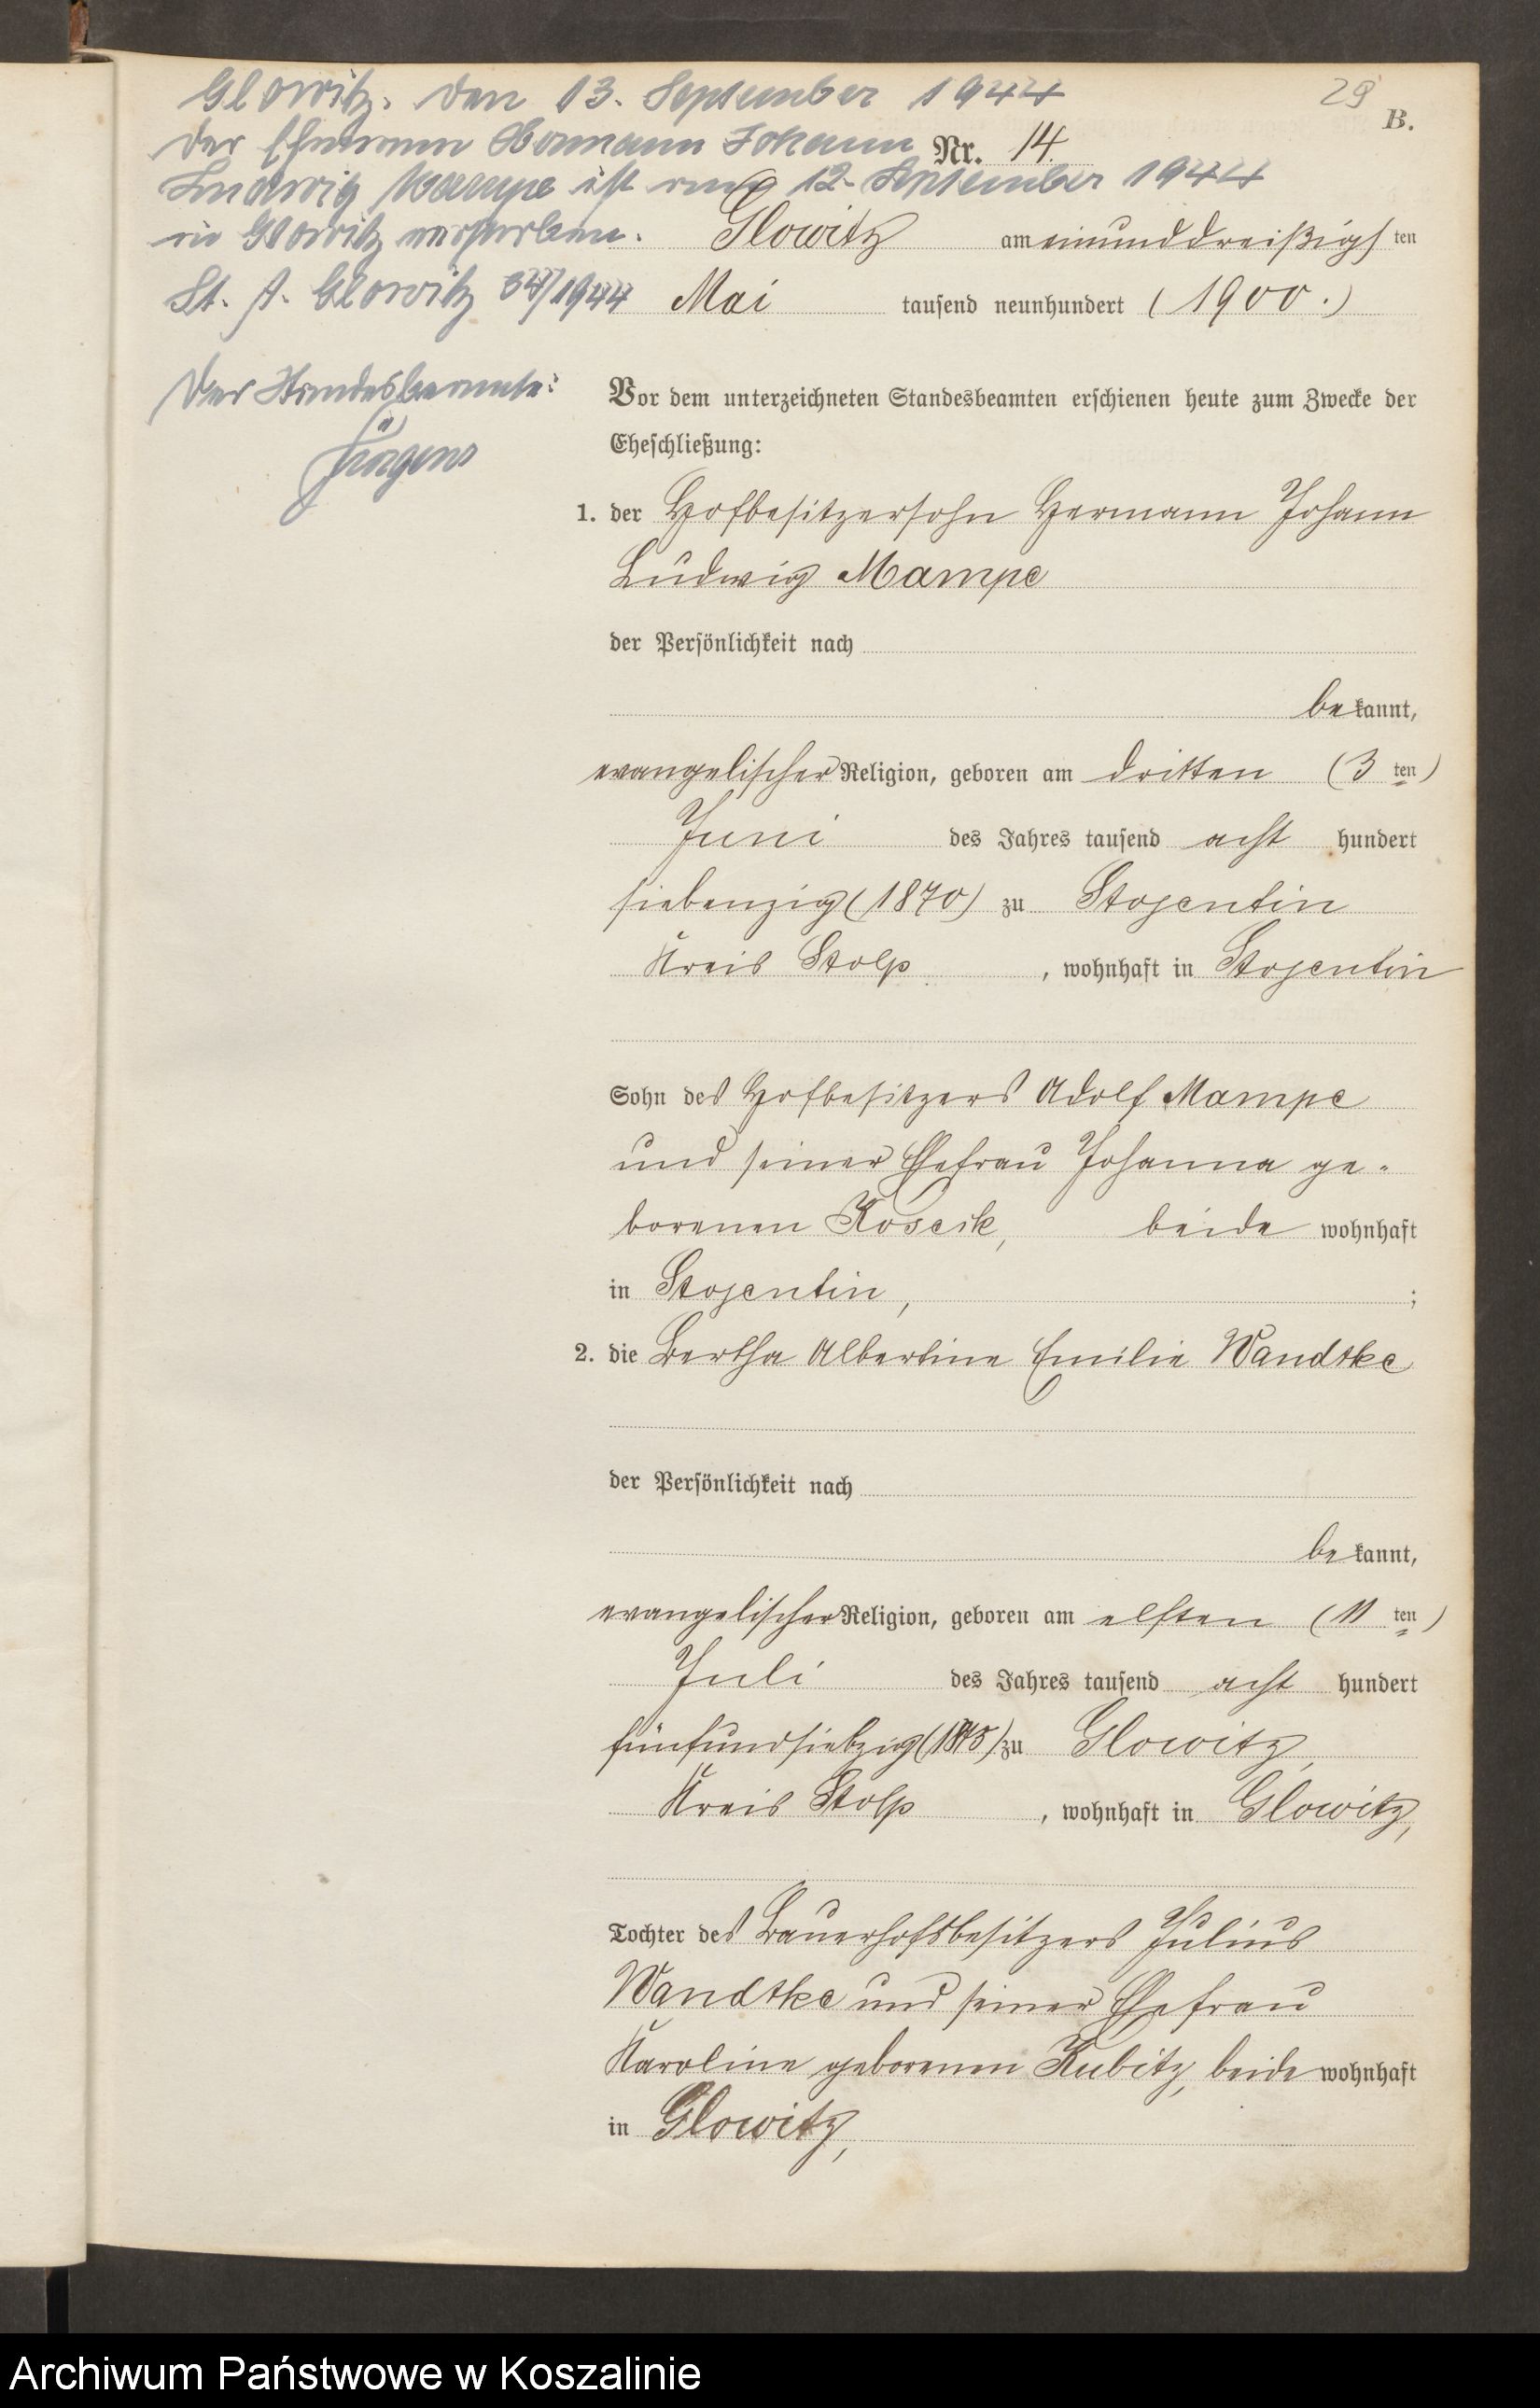 29
B.
Glowitz, den 13. September 1944
Der Ehemann Hermann Johann
Ludwig Mampe ist am 12. September 1944
in Glowitz verstorben.
St. A. Glowitz 34/1944
Der Standesbeamte:
Jürgens
Nr. 14.
Glowitz am einunddreißigsten
Mai tausend neunhundert (1900.)
Vor dem unterzeichneten Standesbeamten erschienen heute zum Zwecke der
Eheschließung:
1. der Hofbesitzersohn Hermann Johann
Ludwig Mampe
der Persönlichkeit nach
bekannt,
evangelischer Religion, geboren am dritten (3 ten)
Juni des Jahres tausend acht hundert
siebenzig (1870) zu Stojentin
Kreis Stolp, wohnhaft in Stojentin
Sohn des Hofbesitzers Adolf Mampe
und seiner Ehefrau Johanna ge-
borenen Koscik, beide wohnhaft
in Stojentin, ;
2. die Bertha Albertine Emilie Wandtke
der Persönlichkeit nach
bekannt,
evangelischer Religion, geboren am elften (11 ten)
Juli des Jahres tausend acht hundert
fünfundsiebzig (1875) zu Glowitz,
Kreis Stolp, wohnhaft in Glowitz,
Tochter des Bauerhofsbesitzers Julius
Wandtke und seiner Ehefrau
Karoline geborenen Kubitz, beide wohnhaft
in Glowitz,
Archiwum Państwowe w Koszalinie